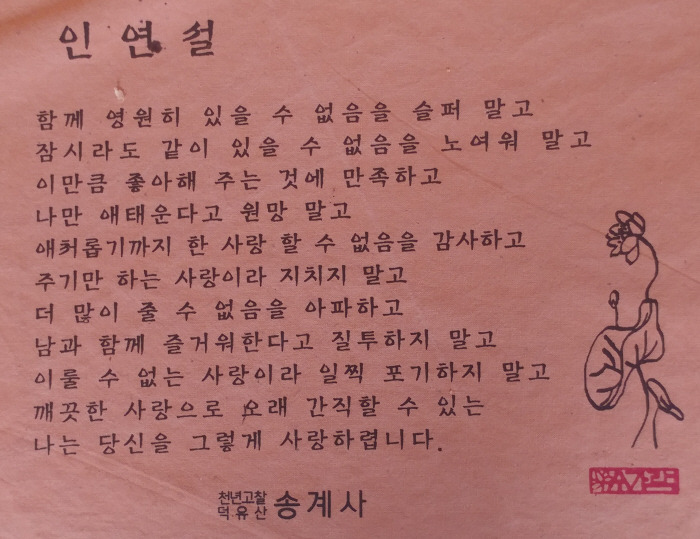 인 연 설
함께 영원히 있을 수 없음을 슬퍼 말고
잠시라도 같이 있을 수 없음을 노여워 말고
이만큼 좋아해 주는 것에 만족하고
나만 애태운다고 원망 말고
애처롭기까지 한 사랑 할 수 없음을 감사하고
주기만 하는 사랑이라 지치지 말고
더 많이 줄 수 없음을 아파하고
남과 함께 즐거워한다고 질투하지 말고
이룰 수 없는 사랑이라 일찍 포기하지 말고
깨끗한 사랑으로 오래 간직할 수 있는
나는 당신을 그렇게 사랑하렵니다.
천년고찰
덕유산 송계사